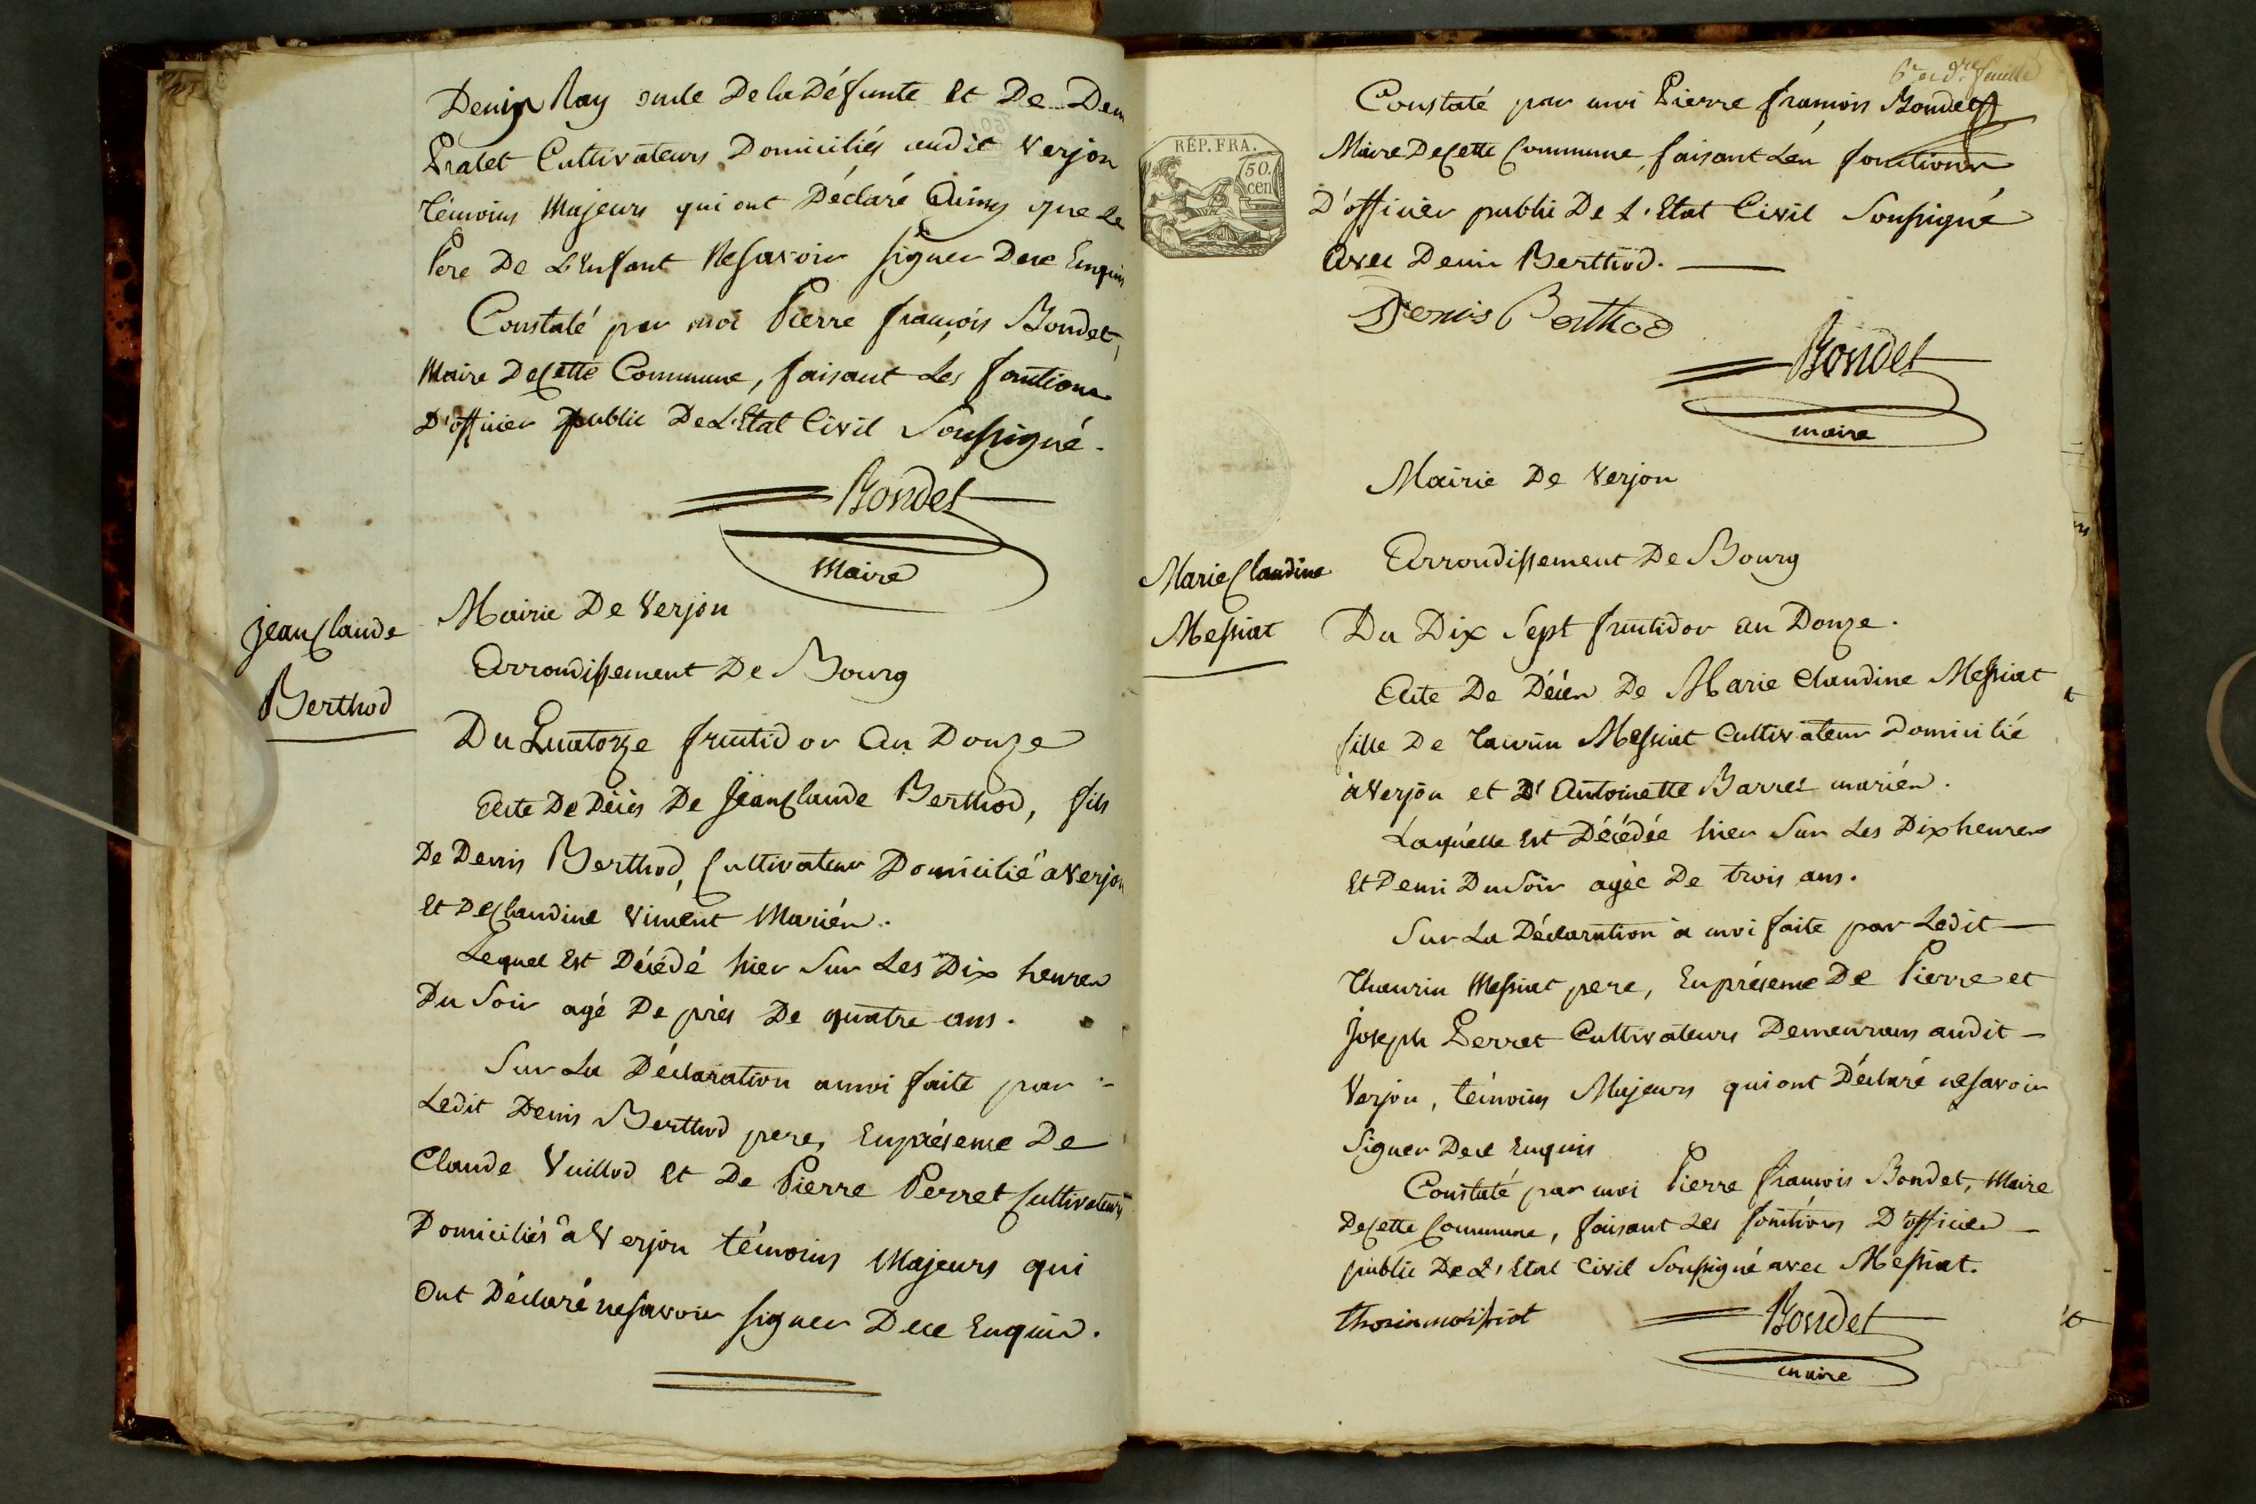 Denis Ray oncle De la Défunte et De Den
Pralet Cultivateurs Domiciliés audit Verjon
témoins Majeurs qui ont Déclaré Ainsy que Le
Pere De L'Enfant Ne savoir signer De ce Enquis
Constaté par moi Pierre françois Bondet,
Maire De Cette Commune, faisant Les fonctions
D'officier public De L'Etat Civil Soussigné.
Bondet
Maire
Jean Claude
Berthod
Mairie De Verjon
Arrondissement De Bourg
Du Quatorze fructidor An Donze
Acte De Décès De Jean Claude Berthod, fils
De Denis Berthod, Cultivateur Domicilié a Verjon
Et De Claudine Viment Mariés.
Lequel Est Décédé hier Sur Les Dix heures
Du Soir agé De près De quatre ans.
Sur La Déclaration a moi faite par
Ledit Denis Berthod pere, En présence De
Claude Vuillod Et De Pierre Perret Cultivateurs
Domiciliés à Verjon témoins Majeurs qui
Ont Déclaré ne savoir signer De ce Enquis.
6e et dre feuille
RÉP. FRA.
50.
cen
Constaté par moi Pierre françois Bondet
Maire De Cette Commune, faisant Les fonctions
D'officier public De L'Etat Civil Soussigné
Avec Denis Berthod.
Denis Berthod
Bondet
maire
Mairie De Verjon
Arrondissement De Bourg
Marie Claudine
Messiat
Du Dix Sept fructidor an Donze.
Acte De Décès De Marie Claudine Messiat
fille De Taurin Messiat Cultivateur Domicilié
à Verjon et D'Antoinette Barret mariés.
Laquelle Est Décédée hier Sur Les Dix heures
Et Demi Du Soir agée De trois ans.
Sur La Déclaration à moi faite par Ledit
Thaurin Messiat pere, En présence De Pierre et
Joseph Perret Cultivateurs Demeurans audit
Verjon, témoins Majeurs qui ont Déclaré ne savoir
Signer De ce Enquis
Constaté par moi Pierre françois Bondet, Maire
De Cette Commune, faisant Les fonctions D'officier
public De L'Etat Civil Soussigné avec Messiat.
thorin moissiat
Bondet
maire